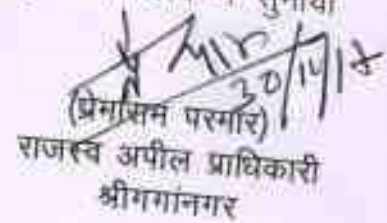 सुनाया
30/11/18
(प्रेमाराम परमार)
राजस्व अपील प्राधिकारी
श्रीगगांनगर